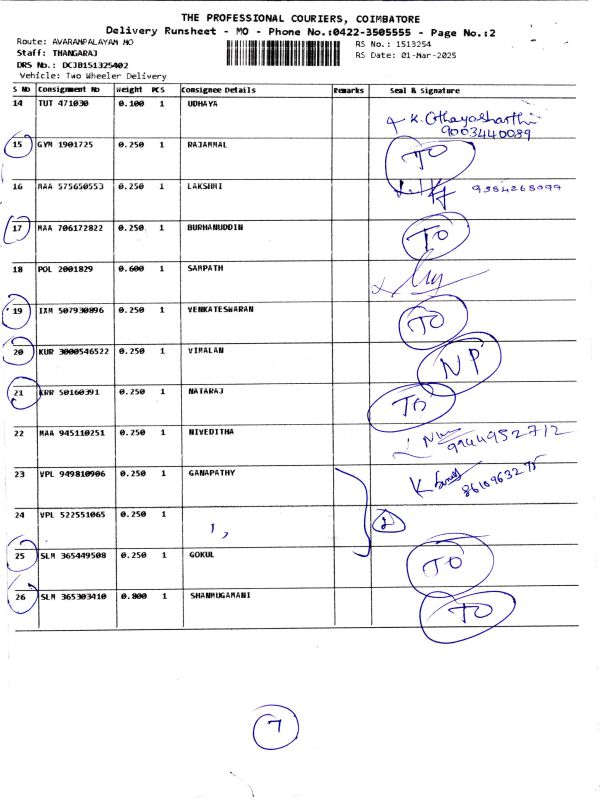 THE PROFESSIONAL COURIERS, COIMBATORE
Delivery Runsheet - MO - Phone No.:0422-3505555 - Page No.:2
Route: AVARAMPALAYAM MO
RS No.: 1513254
Staff: THANGARAJ
RS Date: 01-Mar-2025
DRS No.: DCJB151325402
Vehicle: Two Wheeler Delivery
S No Consignment No Weight PCS Consignee Details Remarks Seal & Signature
14 TUT 471030 0.100 1 UDHAYA
9003440089
15 GYM 1901725 0.250 1 RAJAMMAL TO
16 MAA 575650553 0.250 1 LAKSHMI
17 MAA 706172822 0.250 1 BURHANUDDIN TO
18 POL 2001829 0.600 1 SAMPATH
19 IXM 507930896 0.250 1 VENKATESWARAN TO
20 KUR 3000546522 0.250 1 VIMALAN NP
21 KRR 50160391 0.250 1 NATARAJ TO
22 MAA 945110251 0.250 1 NIVEDITHA 9944952712
23 VPL 949810906 0.250 1 GANAPATHY K
24 VPL 522551065 0.250 1 2
25 SLM 365449508 0.250 1 GOKUL TO
26 SLM 365303410 0.800 1 SHANMUGAMANI TO
7